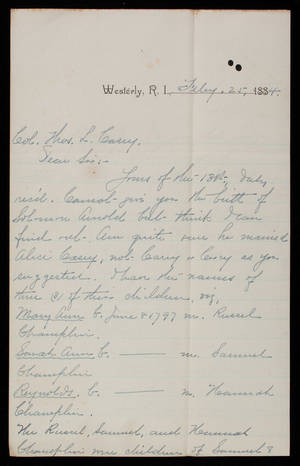 Westerly, R. I., Feby. 25, 1884.
Col. Thos. L. Casey,
Dear Sir:-
Yours of the 18th, duly
rec'd. Cannot give you the birth of
Solomon Arnold but think I can
find out. Am quite sure he married
Alice Casey, not Carey or Corey as you
suggested. I have the names of
three (3) of their children, viz,
Mary Ann b. June 8 1797 m. Russel
Champlin.
Sarah Ann b. — m. Samuel
Champlin
Reynolds, b. — m. Hannah
Champlin.
The Russel, Samuel, and Hannah
Champlin were children of Samuel &